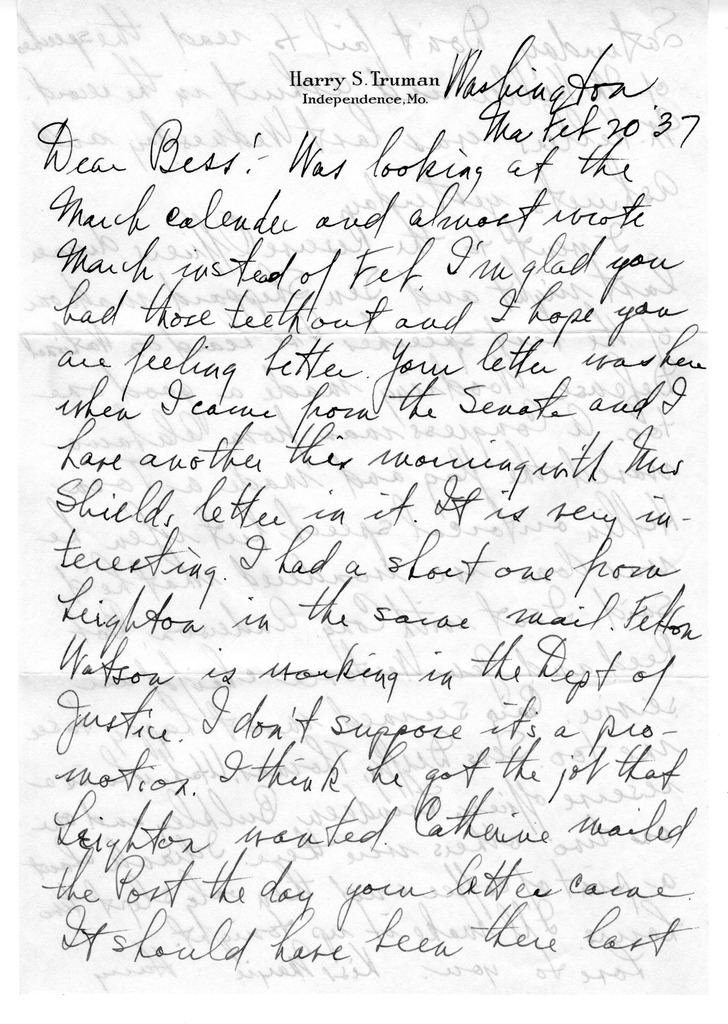 Harry S. Truman
Independence, Mo.
Washington
Ma Feb 20 '37
Dear Bess:- Was looking at the
March calender and almost wrote
March instead of Feb. I'm glad you
had those teeth out and I hope you
are feeling better. Your letter was here
when I came from the Senate and I
have another this morning with Mrs
Shields letter in it. It is very in-
teresting. I had a short one from
Leighton in the same mail. Felton
Watson is working in the Dept of
Justice. I don't suppose it's a pro-
motion. I think he got the job that
Leighton wanted. Catherine mailed
the Post the day your letter came
It should have been there last